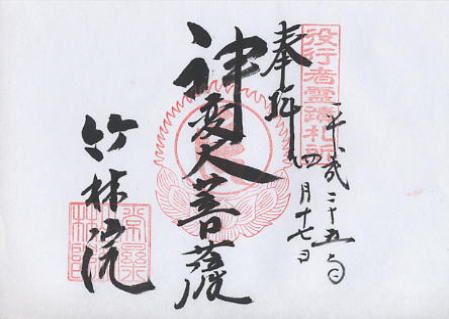 役行者霊蹟札所
平成二十五年
四月十七日
奉拝
神変大菩薩
竹林院